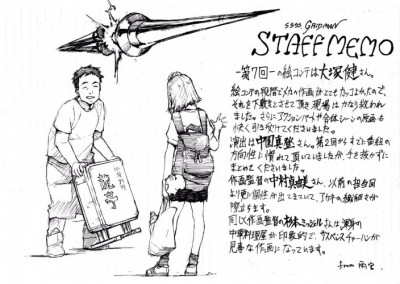 SSSS. GRIDMAN
STAFF MEMO
第7回の絵コンテは大塚健さん。
絵コンテの段階でメカの作画がとてもカッコよかったので、
それを下敷きとさせて頂き 現場はかなり救われ
ました。さらにアクションパートや合体シーンの原画も
引き受けてくださいました。
演出は中園真登さん。第2回からすでに番組の
方向性に慣れて頂いていましたが、
まとめてくださいました。
作画監督の中村真由美さん、以前の担当回
より更に個性が出てきていて、アカネの繊細さが
際立ちます。
同じく作画監督の杉本ミッシェルさんは渾身の
中華料理屋が印象的で、サスペンスチャーハンが
見事な作画になっています。
from 雨宮